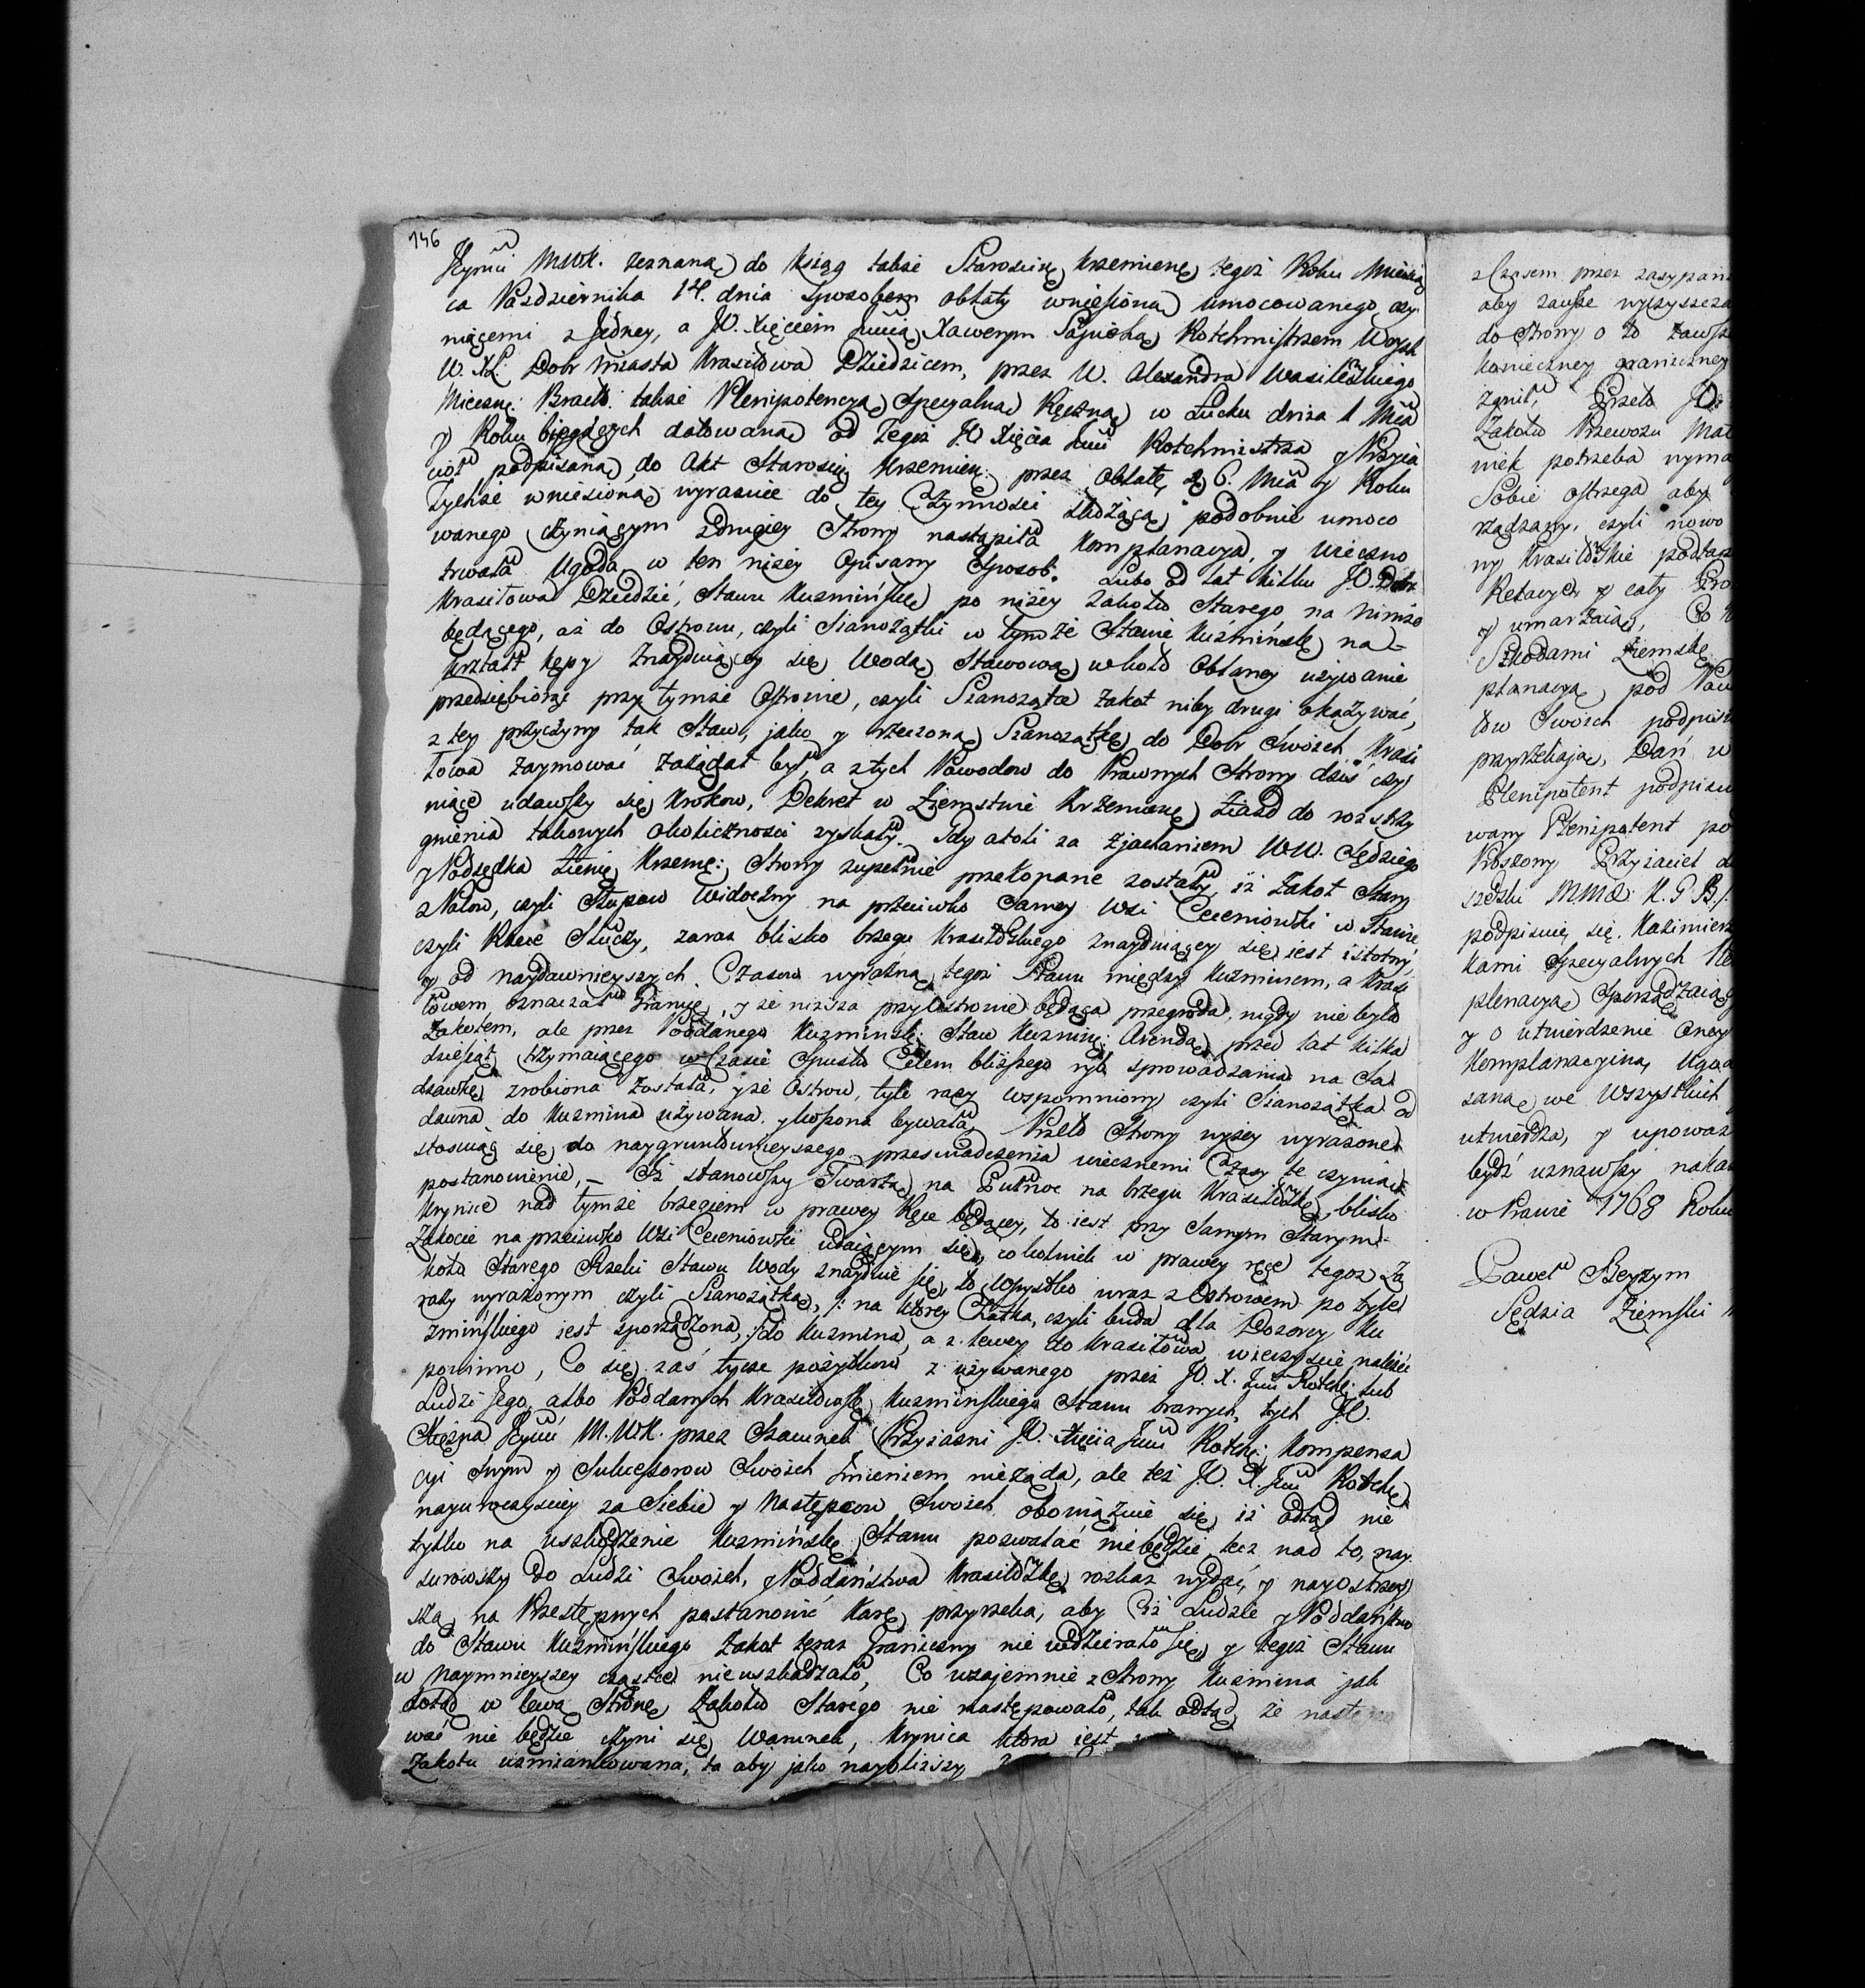 146
Jeymci MWK. zeznaną do ksiąg takze Staroscinę krzemienę tegoz Roku Miesią
ca Pazdziernika 14. dnia Sposobem oblaty wniesioną umocowanego, czy
niącemi z Jedney, a JO. Xięciem Jmcią Xawerym Sapiehą Rotchmistrzem Woysk
W. XL: Dobr Miasta Krasiłowa Dziedzicem, przez W. Alexandra Wasilewskiego
Miecznę: Bracł: takze Plenipotencyą Specyalną Ręczną w Łucku dnia 1 Mca
y Roku biegących datowaną od tegoz JO Xięcia Jmci Rotchmistrza y Przyia
cioł podpisaną, do Akt Staroscię Krzemien: przez Oblatę, 6. Mca y Roku
Tychze wniesioną wyraznie do tey Czynnosci służącą podobnie umoco
wanego czyniącym zdrugiey Strony nastąpiła Komplanacya, y Wieczno
trwała Ugoda w ten niżey Opisany Sposob. Lubo od lat kilku JO. Dobr
Krasiłowa Dziedzić, Stawu Kuzmińskę po niżey Zakotu Starego na nimże
będącego, aż do Ostrowu, czyli Sianożątki w tymże Stawie Kuźmińskę na
krztałt kępy znayduiącey się Wodą Stawową wkoło Oblaney uzywanie
przedsiębiorąc przy tymże Ostrowie, czyli Sianożątce Zakot niby drugi okazywać,
z tey przyczyny tak Staw, jako y rzeczoną Sianożątkę do Dobr Swoich Krasi
łowa zaymować zażądał był, a ztych Powodow do Prawnych Strony dziś czy
niące udawszy się krokow, Dekret w Ziemstwie Krzemienę Ziazd do rozstrzy
gnienia takowych okoliczności zyskały. Gdy atoli za Zjachaniem WW. Sędziego
y Podsędka Ziemię Krzemię: Strony zupełnie przekonane zostały, iż Zakot Stary
z Palow, czyli Słupow Widoczny na przeciwko Samey Wsi Ceceniowki w Stawie
czyli Rzece Słuczy, zaraz blisko brzegu Krasiłowskiego znayduiący się jest istotny,
y od naydawnieyszych Czasow wyrazną tegoz Stawu między Kuzminem, a Krasi
łowem oznaczał Granicę, y że niższa przy Ostrowie będąca przegroda, nigdy nie była
Zakotem, ale przez Poddanego Kuzminsk: Staw Kuzminę: Arendą przed lat kilka
dziesiąt trzymaiącego w Czasie Spustu Celem bliższego ryb sprowadzania na Sa
dzawkę zrobiona została, y że Ostrow, tyle razy wspomniony czyli Sianożątka od
dawna do Kuzmina używana y koszona bywała, Przeto Strony wyżey wyrażone
stosuiąc się do naygruntownieyszego przeswiadczenia wiecznemi Czasy te czynią
postanowienie, – Iż stanowszy Twarzą na Pułnoc na brzegu Krasiłowskę, blisko
Krynice nad tymże brzegiem w prawey Ręce będącey, to iest przy Samym Starym
Zakocie na przeciwko Wsi Ceceniowki udaiącym się, cokolwiek w prawey ręce tegoz Za
kota Starego Rzeki Stawu Wody znaydzie się, to Wszystko wraz z Ostrowem po tyle
razy wyrażonym czyli Sianożątką, /: na ktorey Chatka, czyli buda dla Dozorcy Ku
zminskiego iest sporządzona, :/ do Kuzmina, a z lewey do Krasiłowa wieczyscie należeć
powinno, Co się zaś tycze pożytkow z używanego przez JO. X. Jmci Rotchę: lub
Ludzi Jego, albo Poddanych Krasiłowskę Kuzminskiego Stawu branych, tych JO.
Xiężna Jeymć M.WK. przez Szacunek Przyiazni JO. Xięcia Jmci Rotchę: kompensa
cyi Swym y Sukcessorow Swoich Jmieniem nieżąda, ale też JO. X. Jmć Rotchę
nayuroczysciey za Siebie y Następcow Swoich obowiązuie się, iż odtąd nie
tylko na uszkodzenie Kuzmińskę Stawu pozwalać niebędzie lecz nad to, nay
surowszy do Ludzi Swoich, y Poddaństwa Krasiłowskę rozkaz wydać, y nayostrzey
szą na Przestępnych postanowić Karę przyrzeka, aby Ciż Ludzie y Poddaństwo
do Stawu Kuzmińskiego Zakot teraz Graniczny nie wdzierało się, y tegoz Stawu
w naymnieyszey cząstce nieuszkadzało, Co wzajemnie z Strony Kuzmina jak
dotąd w lewą Stronę Zakotu Starego nie następowało, tak odtąd że następo
wać nie będzie czyni się Warunek, Krynica ktora iest
Zakotu uzmiankowana, ta aby jako nayblizszy
z Czasem przez zasypani
aby zawsze wyczyszcza
do Strony o to zawsz
konieczney graniczney
Przeto JO
Zakotu Przewozu
niek potrzeba wyma
Sobie ostrzega aby
rządzany, czyli nowo
ny Krasiłowskie podta
y cały
y umarzaią, Co
Szkodami Ziemskę
planacyą pod
tow Swoich podpis
przyrzekaią, Dań w
Plenipotent podpisu
wany Plenipotent po
Proszony Przyiaciel
podpisuię się. Kazimierz
kami Specyalnych
planacyą Sporządzaią
y o utwierdzenie oney
Komplanacyiną Ugo
zaną we Wszystkich
utwierdza, y upoważ
bydź uznawszy naka
w Prawie 1768 Roku
Paweł Beyzym
Sędzia Ziemski